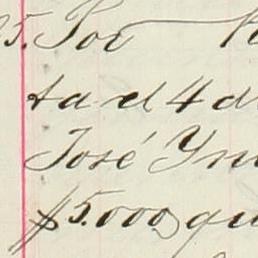 5. Por
ta d el 4 d
José Ym
$5.000 qu